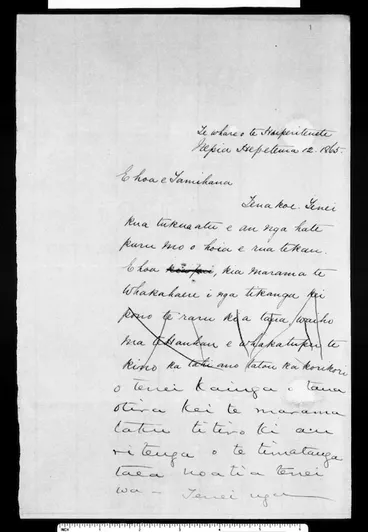 1
Te whare o te Huperitenete
Nepia Hepetema 12. 1865.
E hoa e Tamihana
Tena koe. Tenei
kua tukua atu e au nga hate
puru mo o hoia e rua tekau.
E hoa kia marama te
whakahaere i nga tikanga kei
pono te raru kia taua, waiho
ma te Hauhau e whakatupu te
kino ka tahi ano tatou ka korikori
o tenei Kainga o taua
otira kei te marama
tatu titiro ki a u
ritenga o te timatanga
taea noatia tenei
wa - Tenei